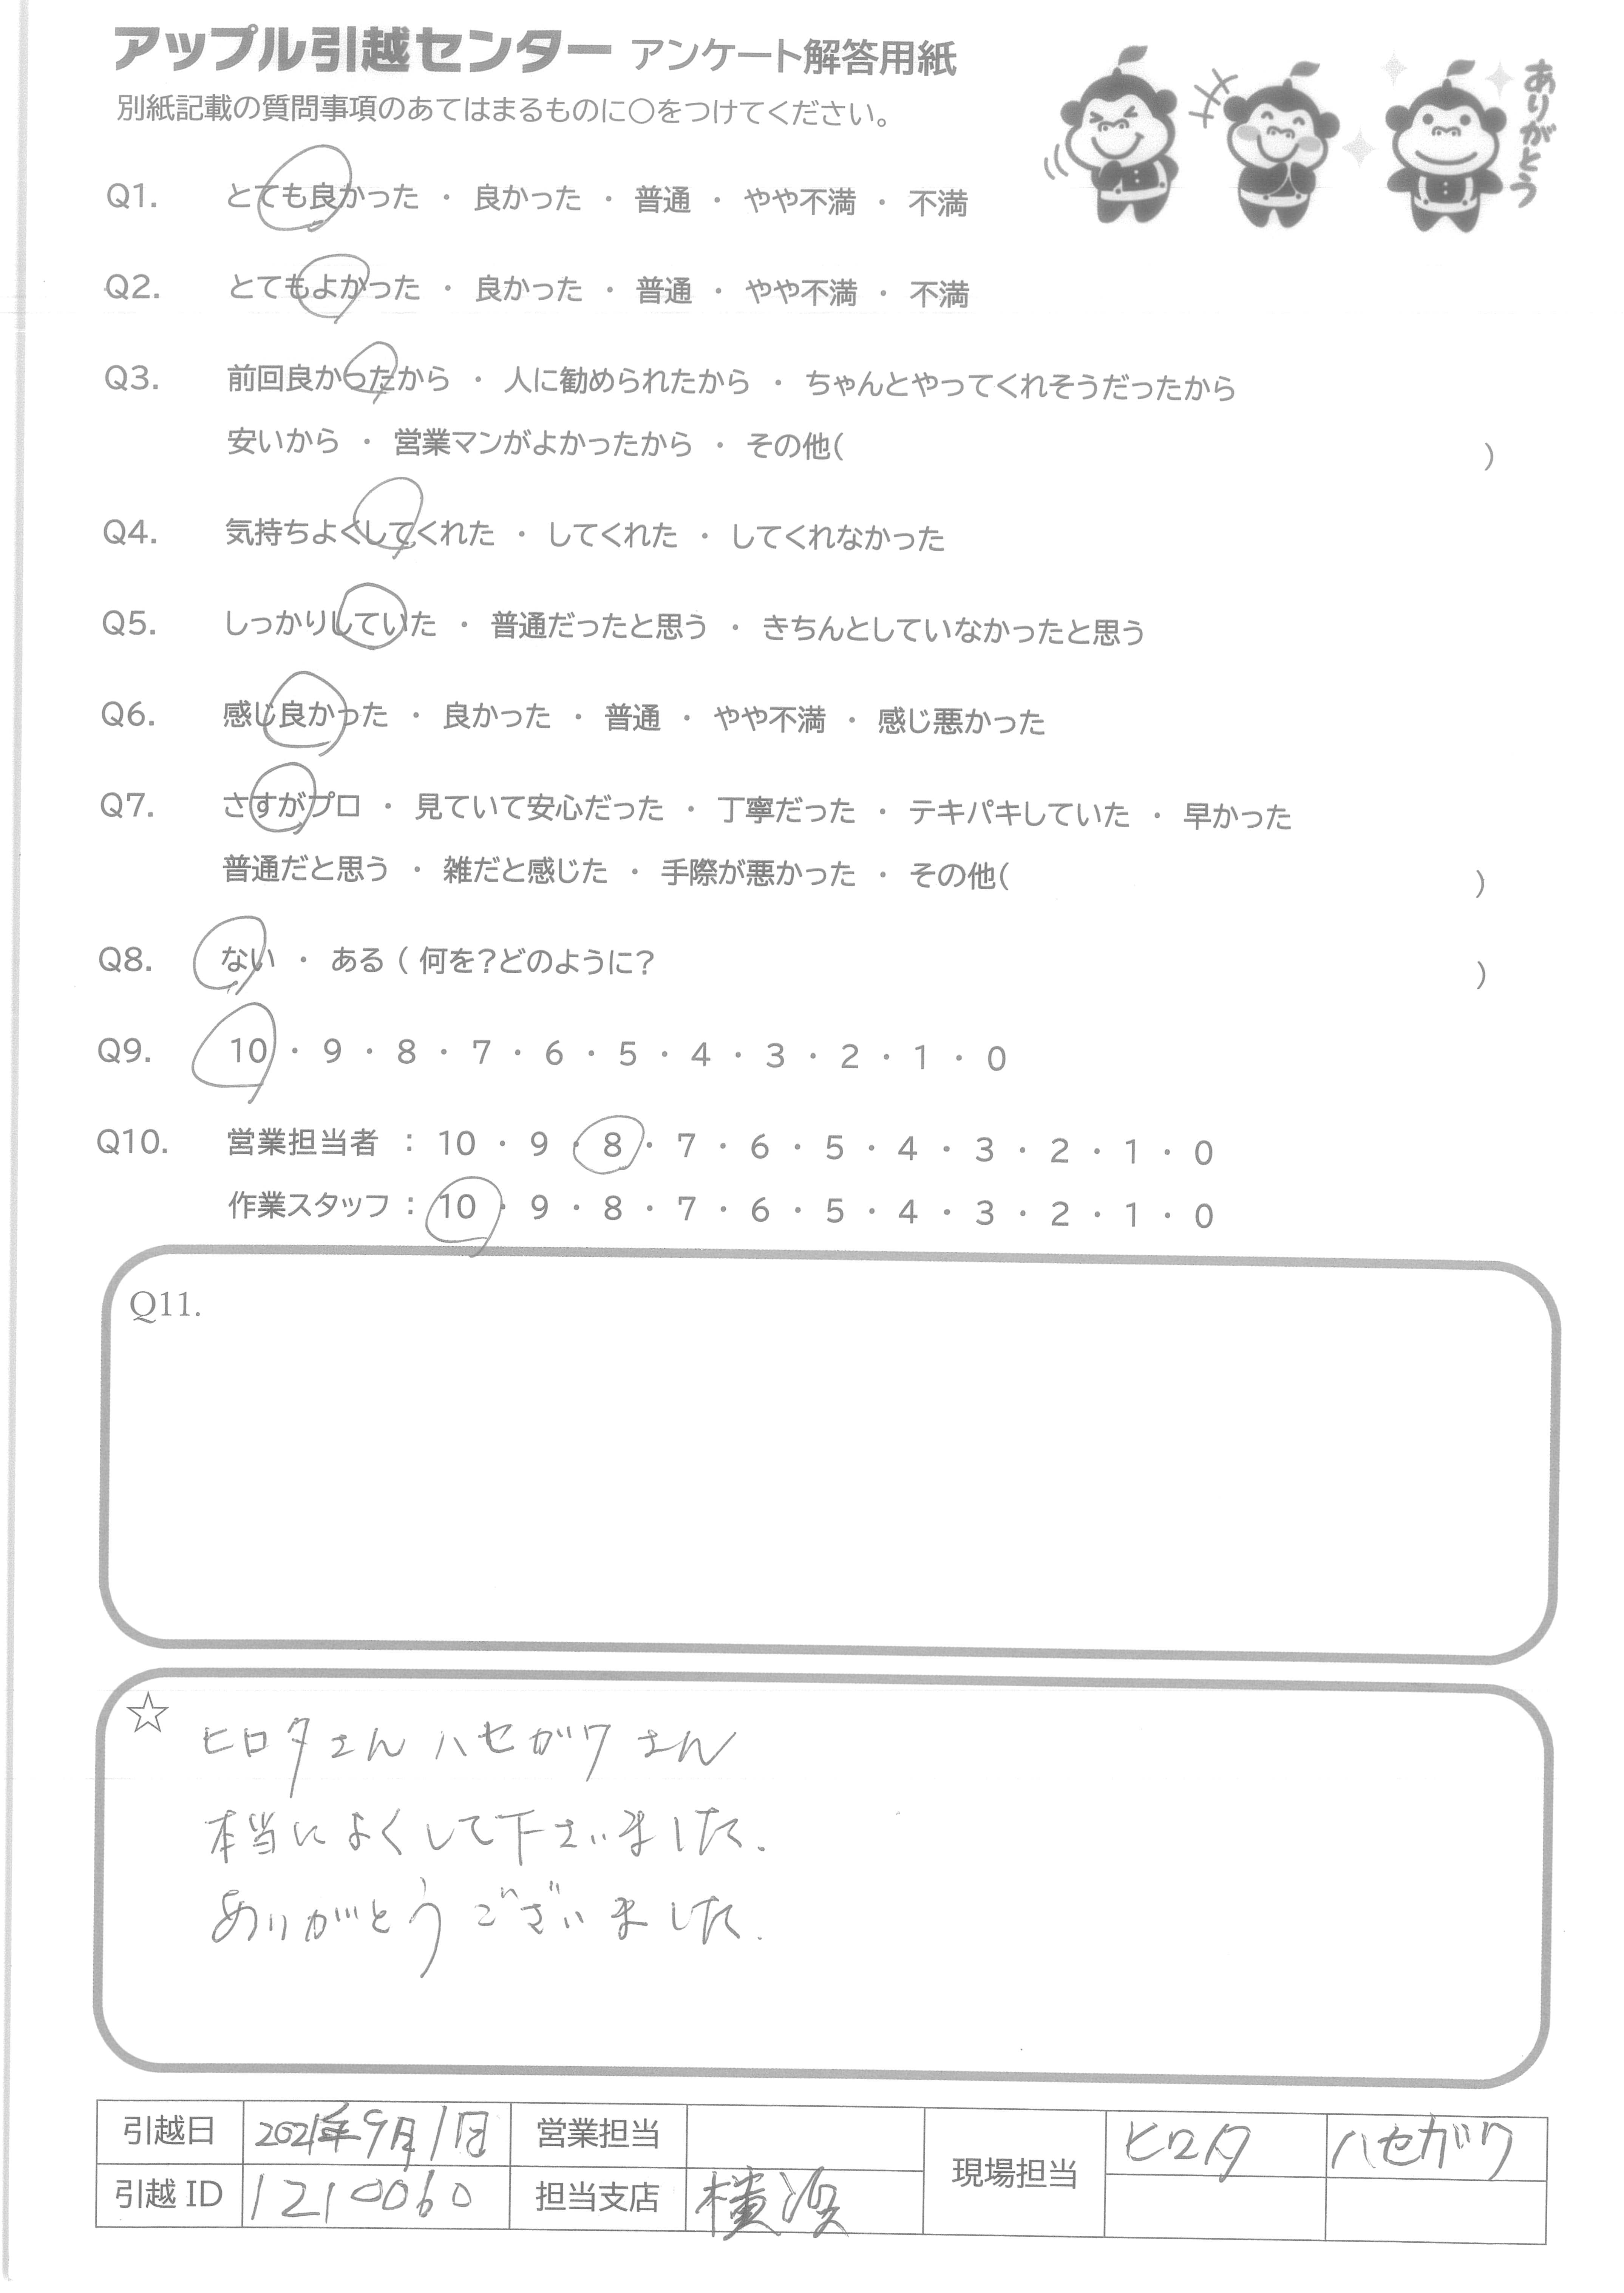 アップル引越センター アンケート解答用紙
別紙記載の質問事項のあてはまるものに○をつけてください。
ありがとう
Q1. とても良かった ・ 良かった ・ 普通 ・ やや不満 ・ 不満
Q2. とてもよかった ・ 良かった ・ 普通 ・ やや不満 ・ 不満
Q3. 前回良かったから ・ 人に勧められたから ・ ちゃんとやってくれそうだったから
安いから ・ 営業マンがよかったから ・ その他( )
Q4. 気持ちよくしてくれた ・ してくれた ・ してくれなかった
Q5. しっかりしていた ・ 普通だったと思う ・ きちんとしていなかったと思う
Q6. 感じ良かった ・ 良かった ・ 普通 ・ やや不満 ・ 感じ悪かった
Q7. さすがプロ ・ 見ていて安心だった ・ 丁寧だった ・ テキパキしていた ・ 早かった
普通だと思う ・ 雑だと感じた ・ 手際が悪かった ・ その他( )
Q8. ない ・ ある ( 何を?どのように? )
Q9. 10 ・ 9 ・ 8 ・ 7 ・ 6 ・ 5 ・ 4 ・ 3 ・ 2 ・ 1 ・ 0
Q10. 営業担当者 : 10 ・ 9 ・ 8 ・ 7 ・ 6 ・ 5 ・ 4 ・ 3 ・ 2 ・ 1 ・ 0
作業スタッフ : 10 ・ 9 ・ 8 ・ 7 ・ 6 ・ 5 ・ 4 ・ 3 ・ 2 ・ 1 ・ 0
Q11.
☆ ヒロタさん ハセガワさん
本当によくして下さいました.
ありがとうございました.
引越日 2021年9月1日 営業担当 現場担当 ヒロタ ハセガワ
引越 ID 1210060 担当支店 横浜